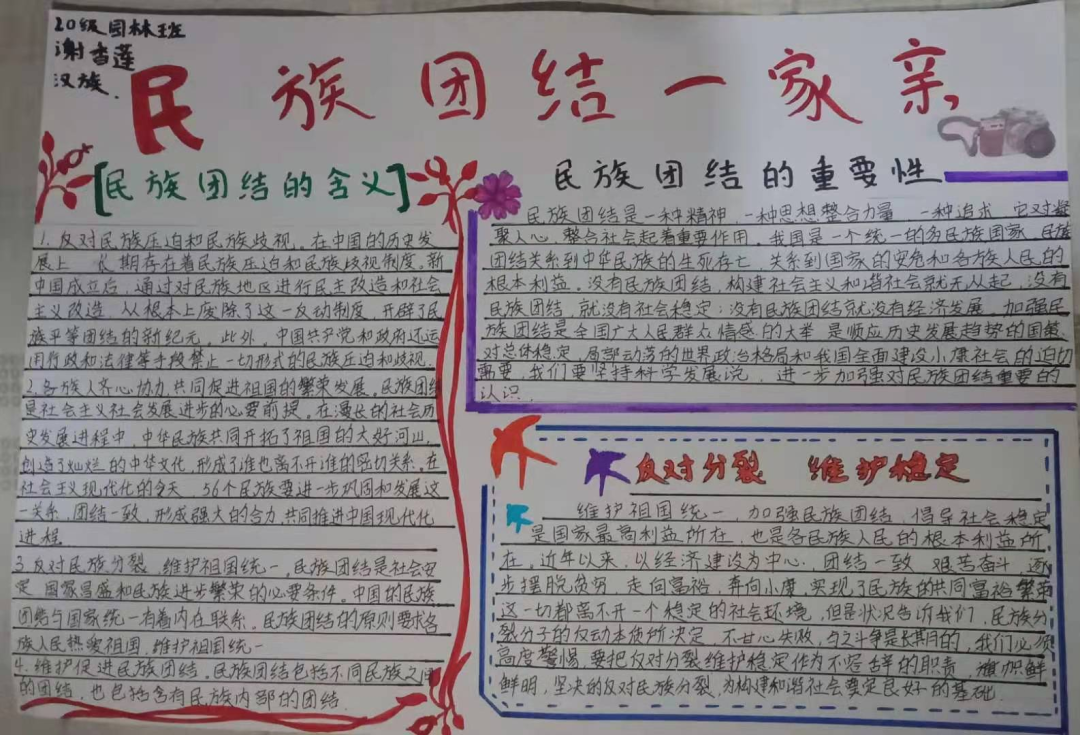 20级园林班
谢杏莲
汉族.
民族团结一家亲
[民族团结的含义]
1.反对民族压迫和民族歧视。在中国的历史发
展上 长期存在着民族压迫和民族歧视制度。新
中国成立后,通过对民族地区进行民主改造和社会
主义改造,从根本上废除了这一反动制度,开辟了民
族平等团结的新纪元。此外,中国共产党和政府还运
用行政和法律等手段禁止一切形式的民族压迫和歧视.
2.各族人齐心协力,共同促进祖国的繁荣发展。民族团结
是社会主义社会发展进步的必要前提。在漫长的社会历
史发展进程中,中华民族共同开拓了祖国的大好河山,
创造了灿烂的中华文化,形成了谁也离不开谁的密切关系。在
社会主义现代化的今天,56个民族要进一步巩固和发展这
一关系,团结一致,形成强大的合力,共同推进中国现代化
进程.
3.反对民族分裂,维护祖国统一。民族团结是社会安
定 国家昌盛和民族进步繁荣的必要条件。中国的民族
团结与国家统一有着内在联系。民族团结的原则要求各
族人民热爱祖国,维护祖国统一
4.维护促进民族团结。民族团结包括不同民族之间
的团结,也包括含有民族内部的团结.
民族团结的重要性
民族团结是一种精神,一种思想整合力量,一种追求,它对凝
聚人心 整合社会起着重要作用。我国是一个统一的多民族国家,民族
团结关系到中华民族的生死存亡,关系到国家的安危和各族人民的
根本利益。没有民族团结,构建社会主义和谐社会就无从起,没有
民族团结,就没有社会稳定;没有民族团结就没有经济发展。加强民
族团结是全国广大人民群众情感的大举 是顺应历史发展趋势的国策
对总体稳定,局部动荡的世界政治格局和我国全面建设小康社会的迫切
需要,我们要坚持科学发展说,进一步加强对民族团结重要的
认识.
反对分裂 维护稳定
维护祖国统一,加强民族团结,倡导社会稳定
是国家最高利益所在,也是各民族人民的根本利益所
在。近年以来,以经济建设为中心,团结一致 艰苦奋斗 逐
步摆脱贫穷,走向富裕,奔向小康,实现了民族的共同富裕繁荣
这一切都离不开一个稳定的社会环境,但是状况告诉我们,民族分
裂分子的反动本质所决定,不甘心失败,与之斗争是长期的,我们必须
高度警惕,要把反对分裂维护稳定作为不容辞的职责,旗帜鲜
鲜明,坚决的反对民族分裂,为构建和谐社会奠定良好的基础.